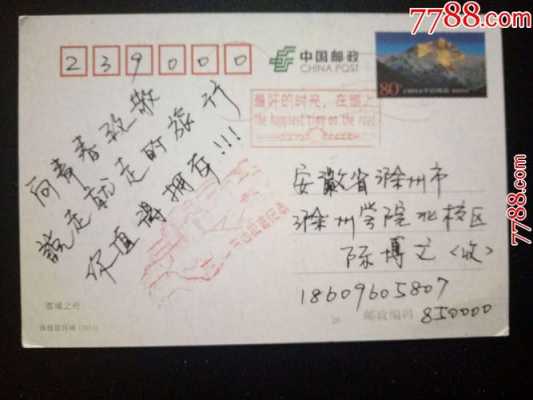 7788.com
239000
中国邮政
CHINA POST
80分
最好的时光，在路上
The happiest time on the road
向青春致敬
说走就走的旅行
你值得拥有!!!
安徽省滁州市
滁州学院北校区
陈博文<收>
18609605807
邮政编码
850000
7788.com
7788.com